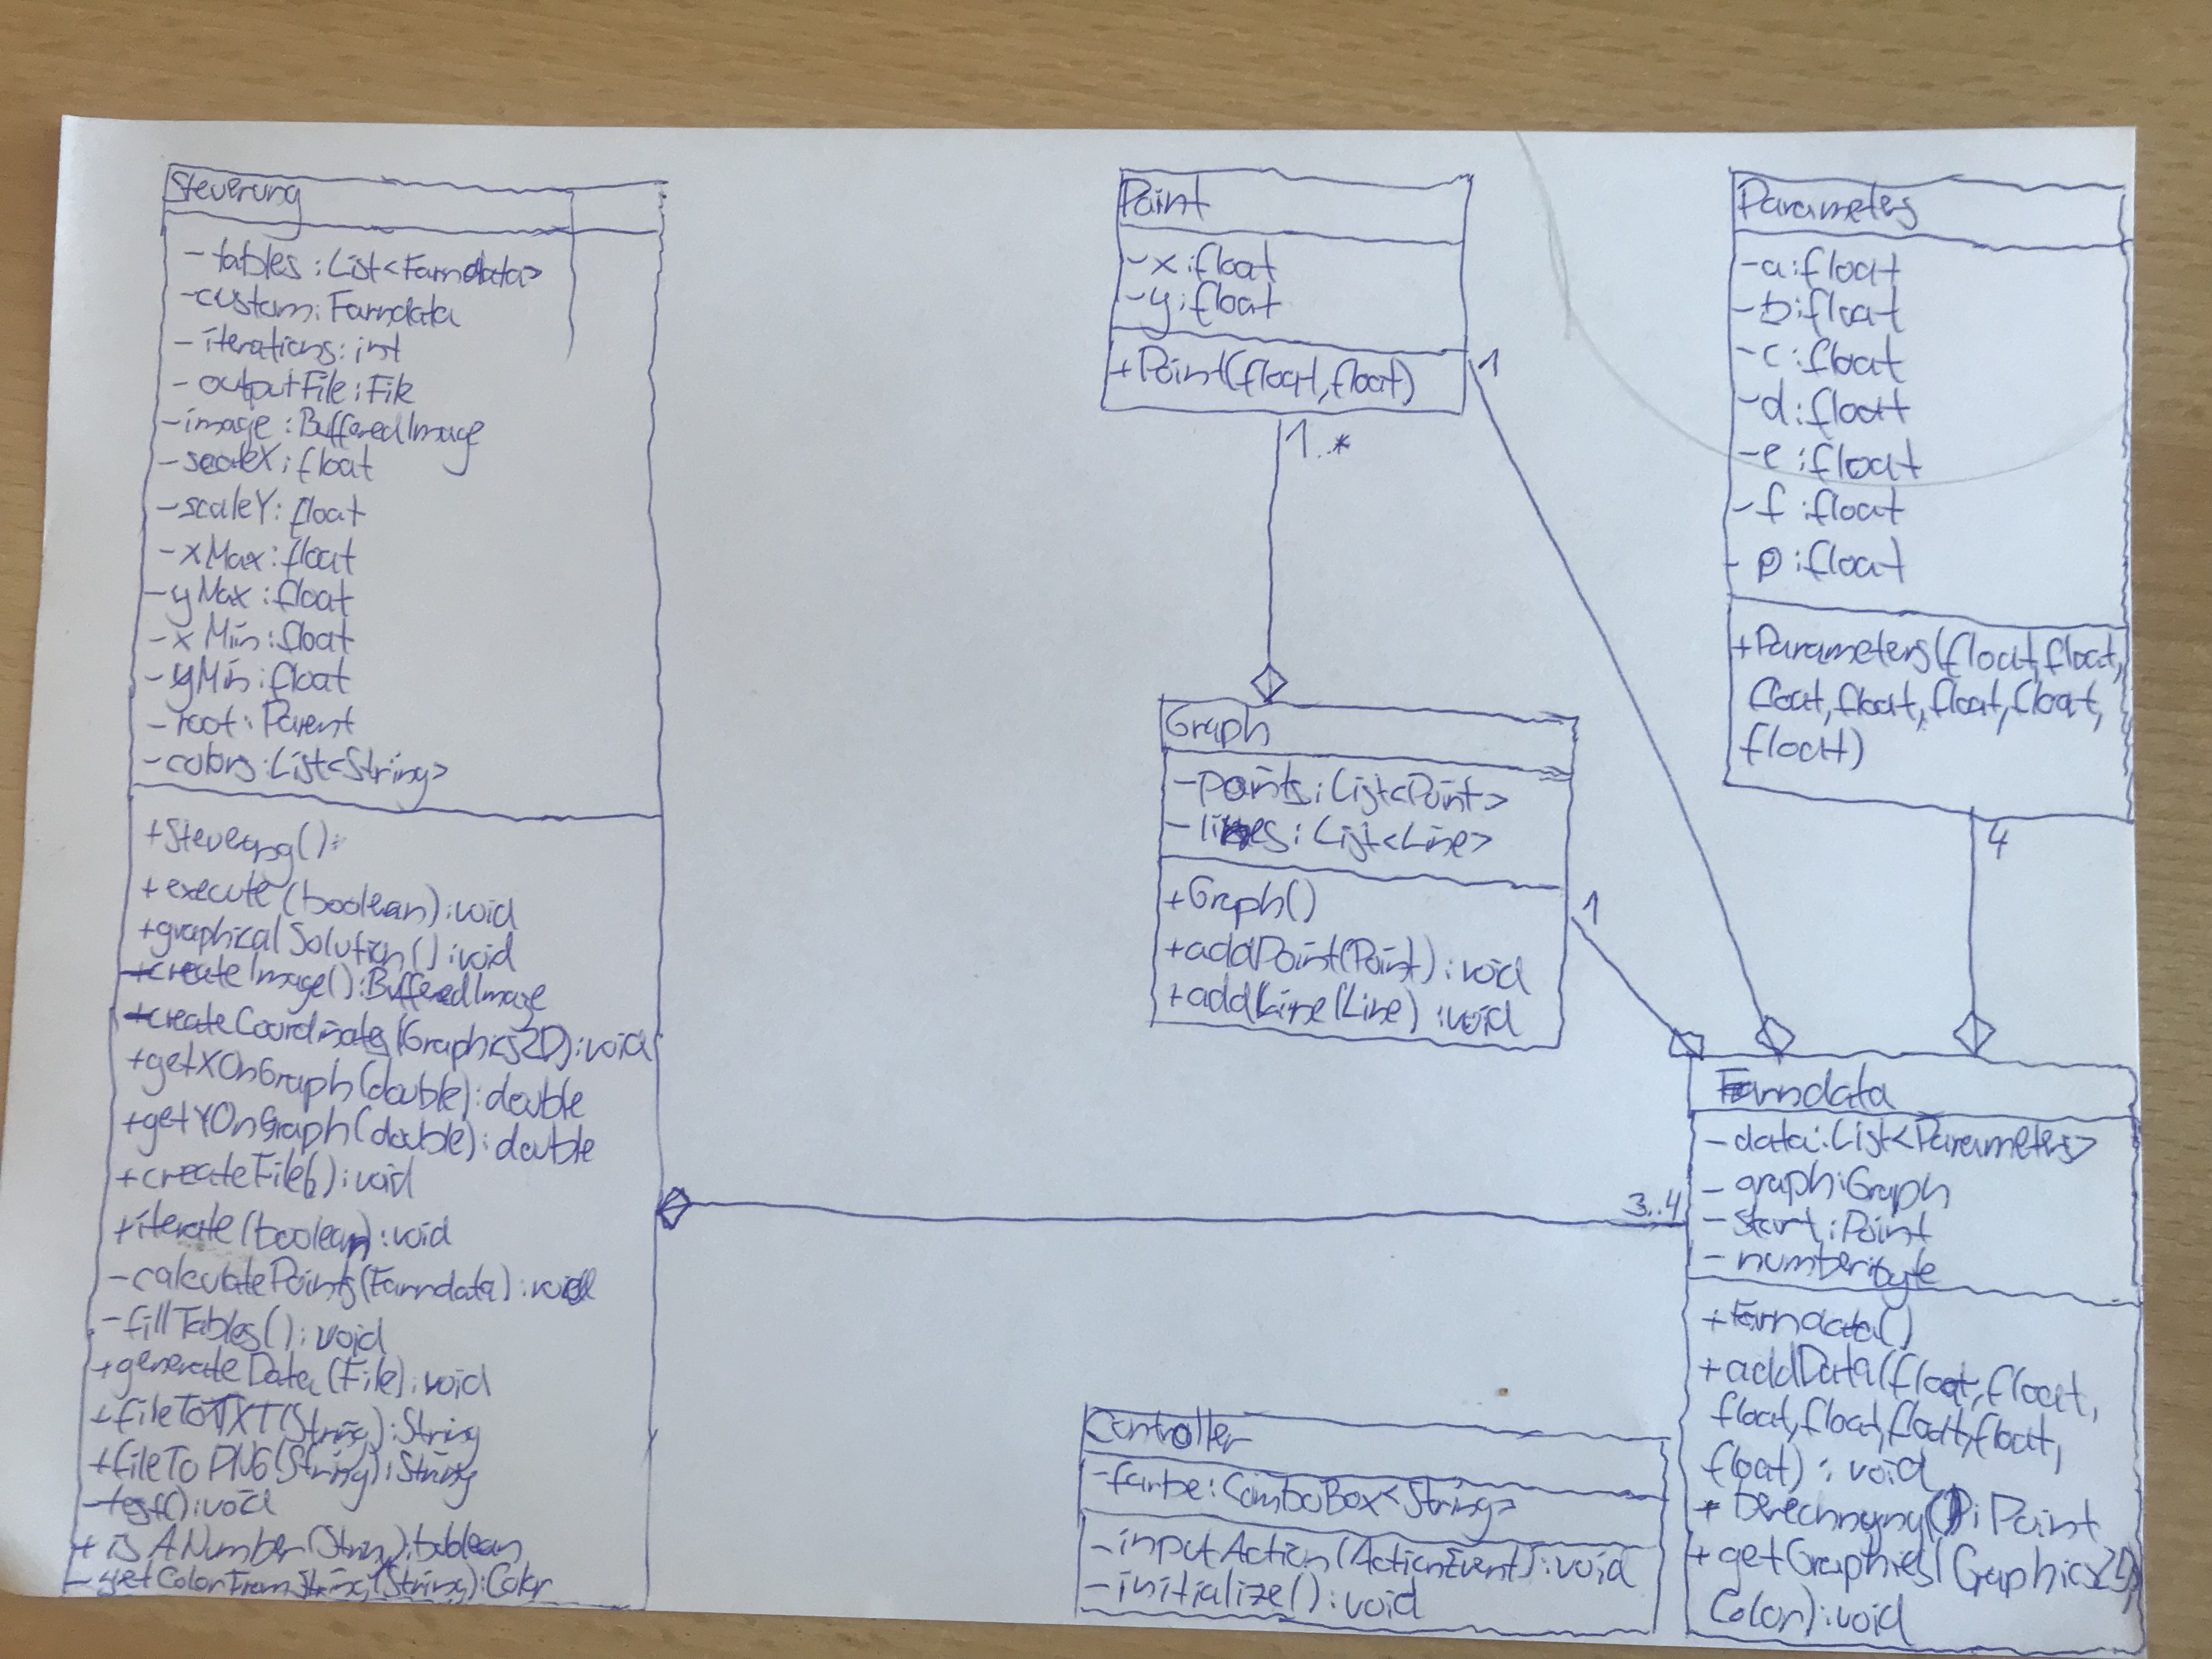 Steuerung
-tables:List<Farndata>
-custom:Farndata
-iterations:int
-outputFile:File
-image:BufferedImage
-scaleX:float
-scaleY:float
-xMax:float
-yMax:float
-xMin:float
-yMin:float
-root:Parent
-colors:List<String>
+Steuerung()
+execute(boolean):void
+graphicalSolution():void
+createImage():BufferedImage
+createCoordinates(Graphics2D):void
+getXOnGraph(double):double
+getYOnGraph(double):double
+createFile():void
+iterate(boolean):void
-calculatePoints(Farndata):void
-fillTables():void
+generateData(File):void
+fileToTXT(String):String
+fileToPNG(String):String
-test():void
+isANumber(String):boolean
-getColorFromString(String):Color
Point
-x:float
-y:float
+Point(float,float)
1
1..*
Graph
-points:List<Point>
-lines:List<Line>
+Graph()
+addPoint(Point):void
+addLine(Line):void
1
Parameters
-a:float
-b:float
-c:float
-d:float
-e:float
-f:float
-p:float
+Parameters(float,float,
float,float,float,float,
float)
4
Farndata
-data:List<Parameters>
-graph:Graph
-start:Point
-number:byte
3..4
+Farndata()
+addData(float,float,
float,float,float,float,
float):void
+berechnung():Point
+getGraphics(Graphics2D,
Color):void
Controller
-farbe:ComboBox<String>
-inputAction(ActionEvent):void
-initialize():void